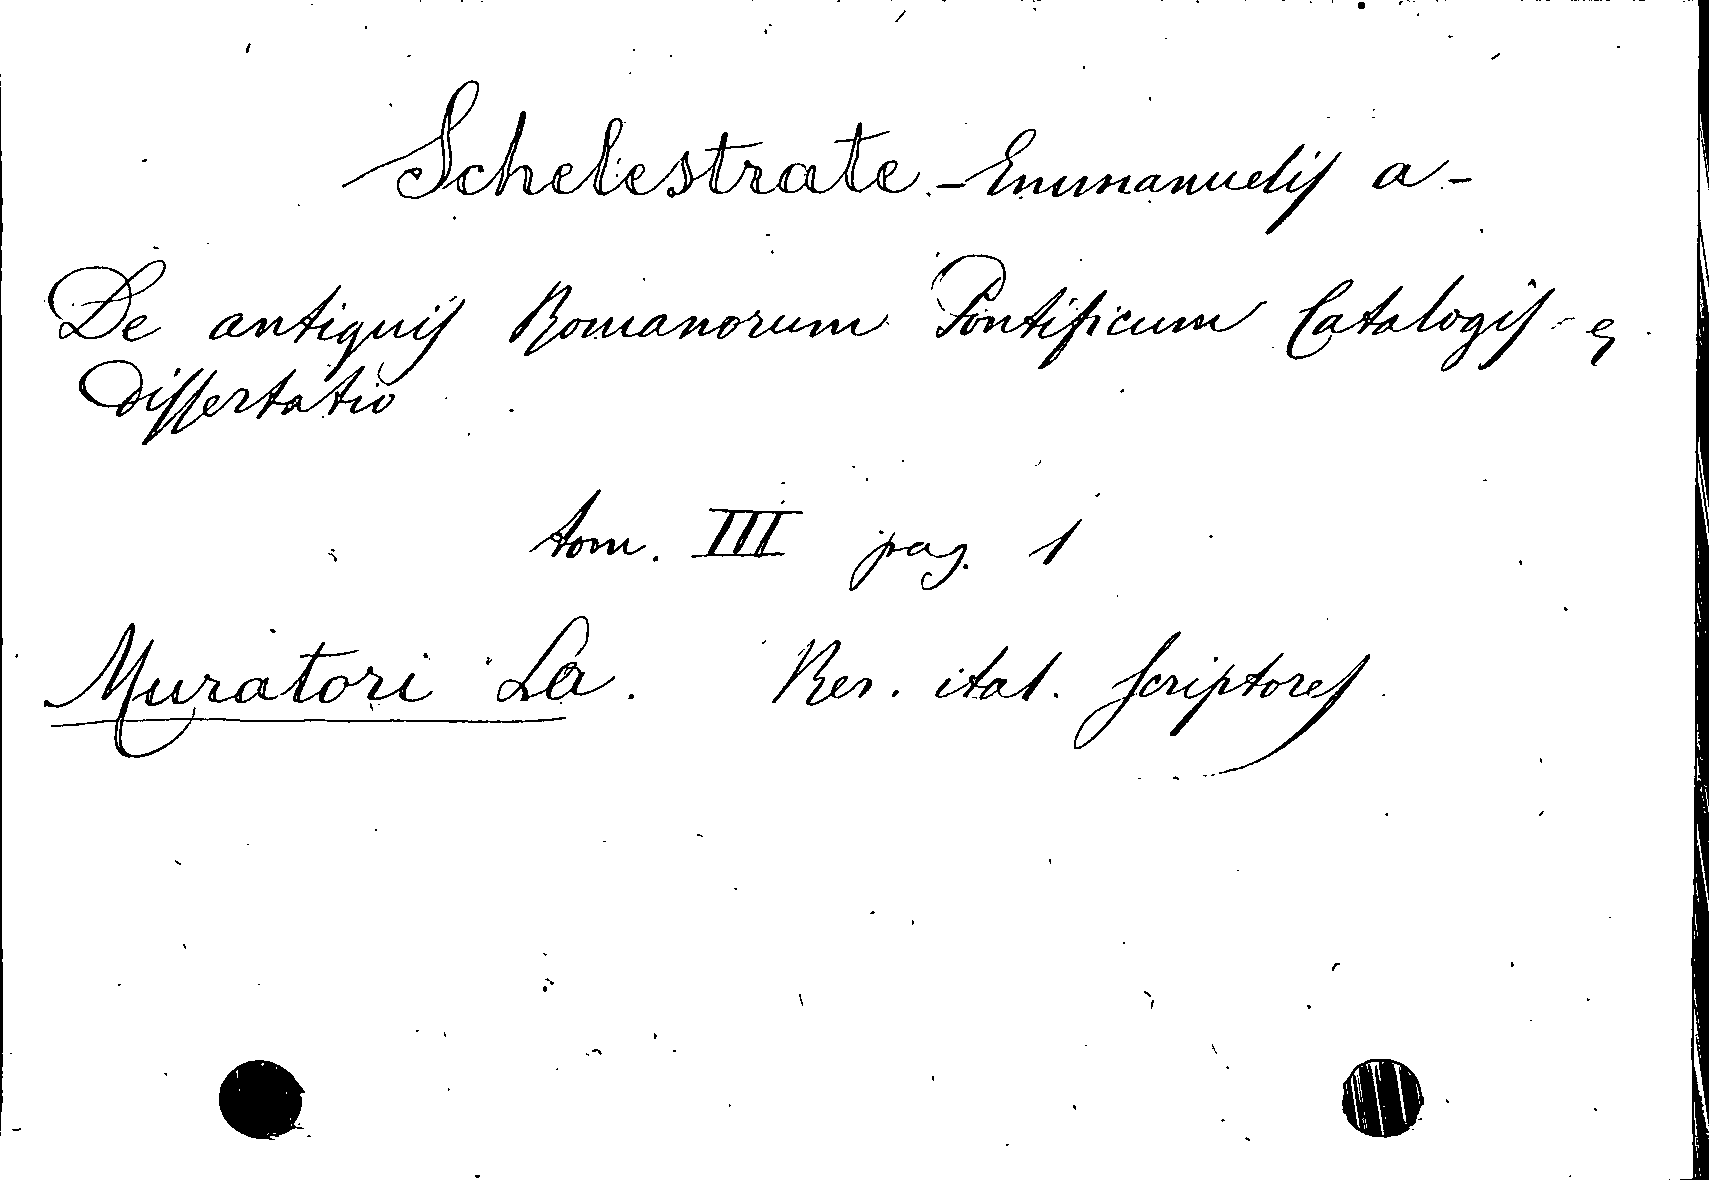 Schelestrate - Emmanuelis a -
De antiquis Romanorum Pontificum Catalogis
dissertatio
tom. III pag. 1
Muratori La. Rer. ital. scriptores